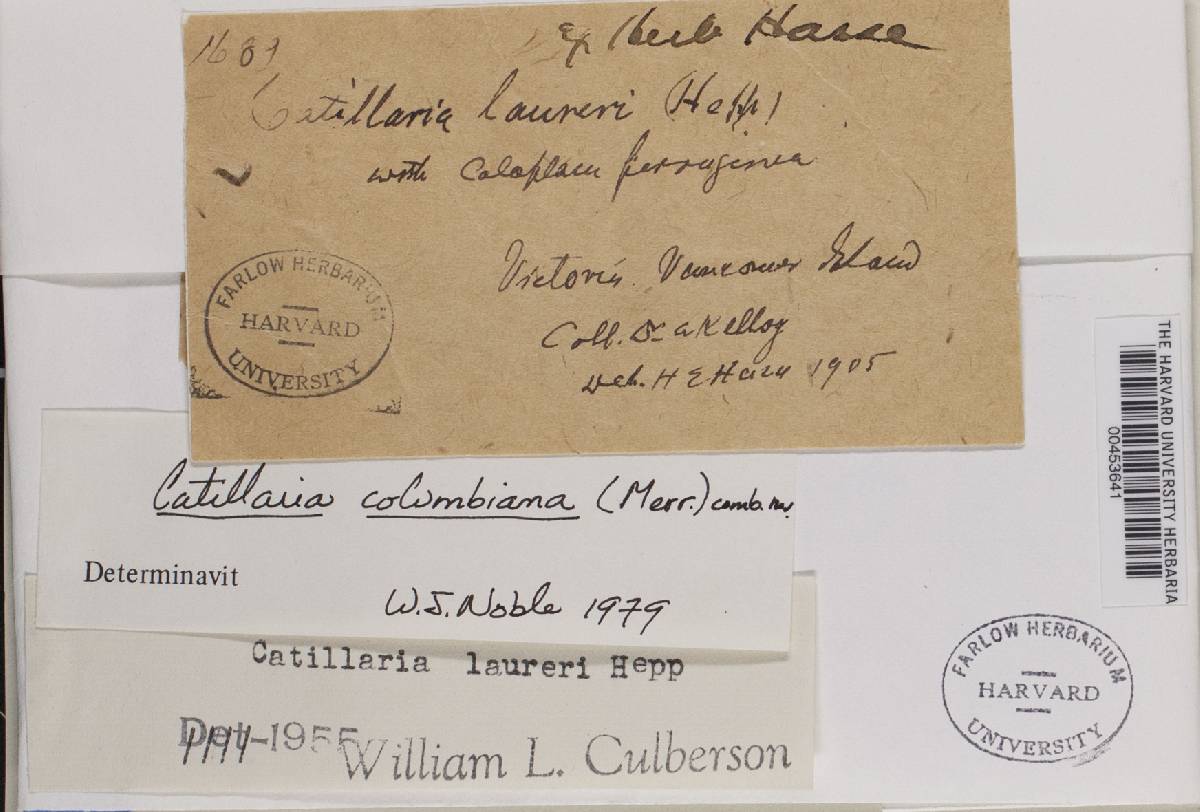 1681
Ex Herb Hasse
Catillaria laureri (Hepp)
with Caloplaca ferruginea
Victoria Vancouver Island
Coll. Dr A Kellog
Det. H E Hasse 1905
FARLOW HERBARIUM
HARVARD
UNIVERSITY
Catillaria columbiana (Merr.) comb. nov.
Determinavit
W.J. Noble 1979
Catillaria laureri Hepp
Det-1955
William L. Culberson
THE HARVARD UNIVERSITY HERBARIA
00453641
FARLOW HERBARIUM
HARVARD
UNIVERSITY